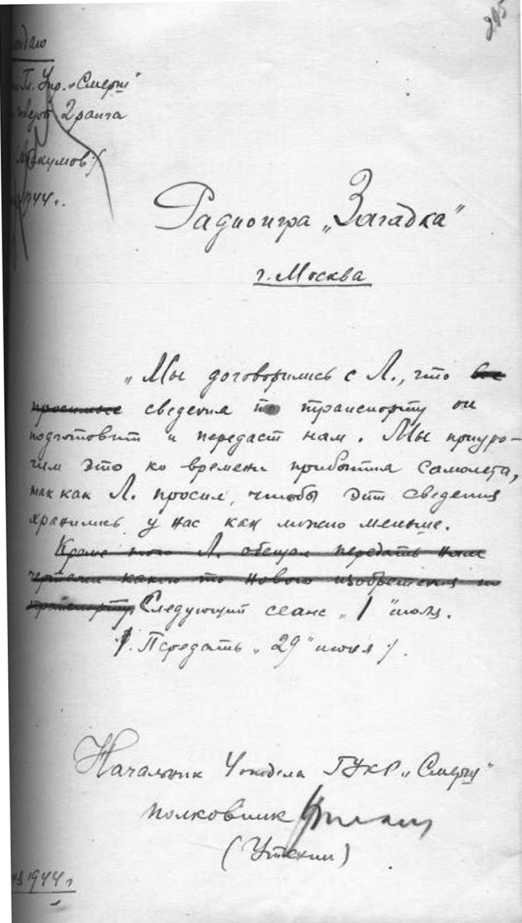 205
Гл. Упр. „Смерш"
2 ранга
Абакумов /
1944 г.
Радиоигра „Загадка"
г. Москва
„Мы договорились с Л., что все
просимые сведения по транспорту он
подготовит и передаст нам. Мы приуро-
чим это ко времени прибытия самолета,
так как Л. просил, чтобы эти сведения
хранились у нас как можно меньше.
Кроме того Л. обещал передать нам
чертежи какого то нового изобретения по
транспорту. Следующий сеанс „1" июля.
/. Передать „29" июня /.
Начальник 4 отдела ГУКР „Смерш"
полковник
(Утехин)
1944 г